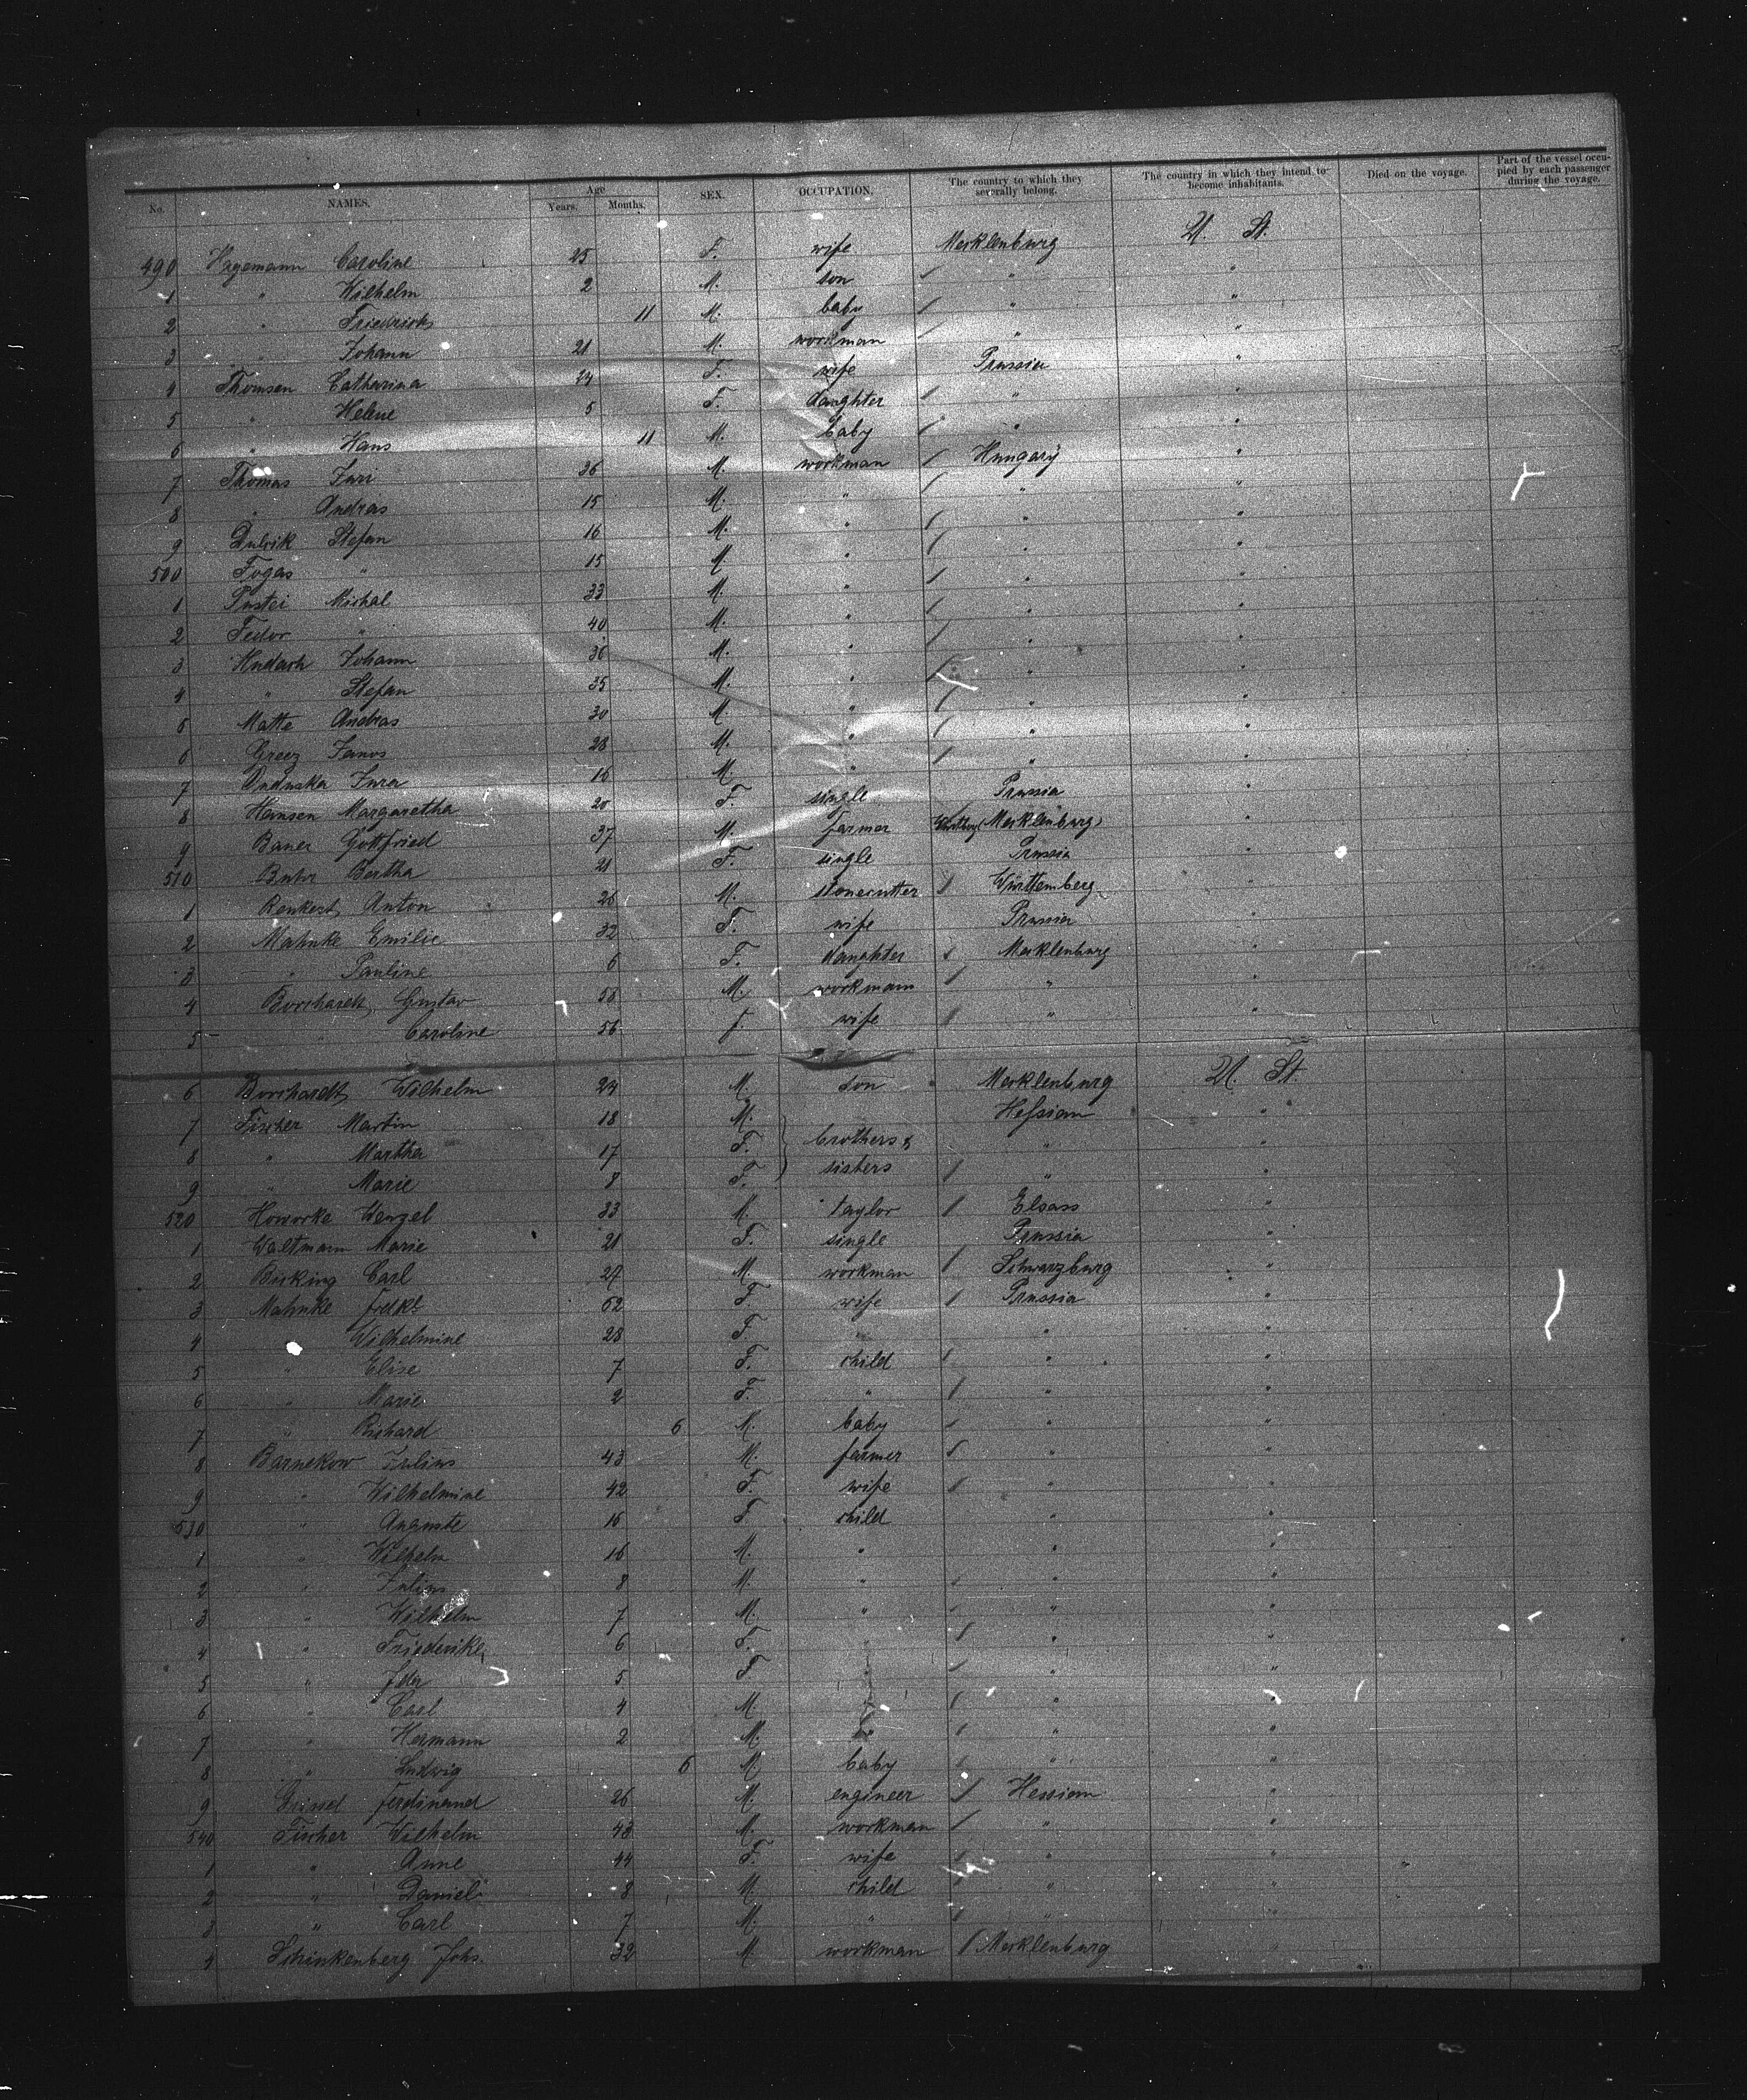 No. NAMES. Age Years. Months. SEX. OCCUPATION. The country to which they severally belong. The country in which they intend to become inhabitants. Died on the voyage. Part of the vessel occupied by each passenger during the voyage.
490 Hagemann Caroline 25 F. wife Mecklenburg U. St.
1 " Wilhelm 2 M. son " "
2 " Friedrich 11 M. baby " "
3 " Johann 21 M. workman " "
4 Thomsen Catharina 24 F. wife Prussia "
5 " Helene 5 F. daughter " "
6 " Hans 11 M. baby " "
7 Thomas Juri 36 M. workman Hungary "
8 " Andreas 15 M. " " "
9 Stefan 16 M. " " "
500 Fogas " 15 M. " " "
1 Pustei Michal 33 M. " " "
2 Fedor " 40 M. " " "
3 Hudach Johann 36 M. " " "
4 " Stefan 35 M. " " "
5 Matte Andras 30 M. " " "
6 Janos 28 M. " " "
7 Jura 16 M. " " "
8 Hansen Margaretha 20 F. single Prussia "
9 Bauer Gottfried 37 M. farmer (Mecklenburg) "
510 Buhr Bertha 21 F. single Prussia "
1 Anton 26 M. stonecutter Württemberg "
2 Mahnke Emilie 32 F. wife Prussia "
3 " Pauline 6 F. daughter Mecklenburg "
4 Borchardt, Gustav 58 M. workmam " "
5 " Caroline 56 f. wife " "
6 Borchardt, Wilhelm 24 M. son Mecklenburg U. St.
7 Fischer Martin 18 M. Hessian "
8 " Martha 17 F. brothers & " "
9 " Marie 8 F. sisters " "
520 Howorke Wenzel 33 M. taylor Elsass "
1 Waltmann Marie 21 F. single Prussia "
2 Bicking Carl 27 M. workman Schwarzburg "
3 Mahnke Fredke 62 F. wife Prussia "
4 Wilhelmine 28 F. " " "
5 " Elise 7 F. child " "
6 " Marie 2 F. " " "
7 " Richard 6 M. baby " "
8 Barnekow Julius 43 M. farmer " "
9 " Wilhelmine 42 F. wife " "
530 " Auguste 16 F child " "
1 " Wilhelm 16 M. " " "
2 " Julius 8 M. " " "
3 " Wilhelm 7 M. " " "
4 " Friederike 6 F. " " "
5 " Ida 5 F " " "
6 " Carl 4 M. " " "
7 " Hermann 2 M. " " "
8 " Ludwig 6 M. baby " "
9 Ferdinand 26 M. engineer Hessian "
540 Fischer Wilhelm 48 M. workman " "
1 " Anne 44 F. wife " "
2 " Daniel 8 M. child " "
3 " Carl 7 M. " "
4 Schinkenberg Johs. 32 M. workman Mecklenburg